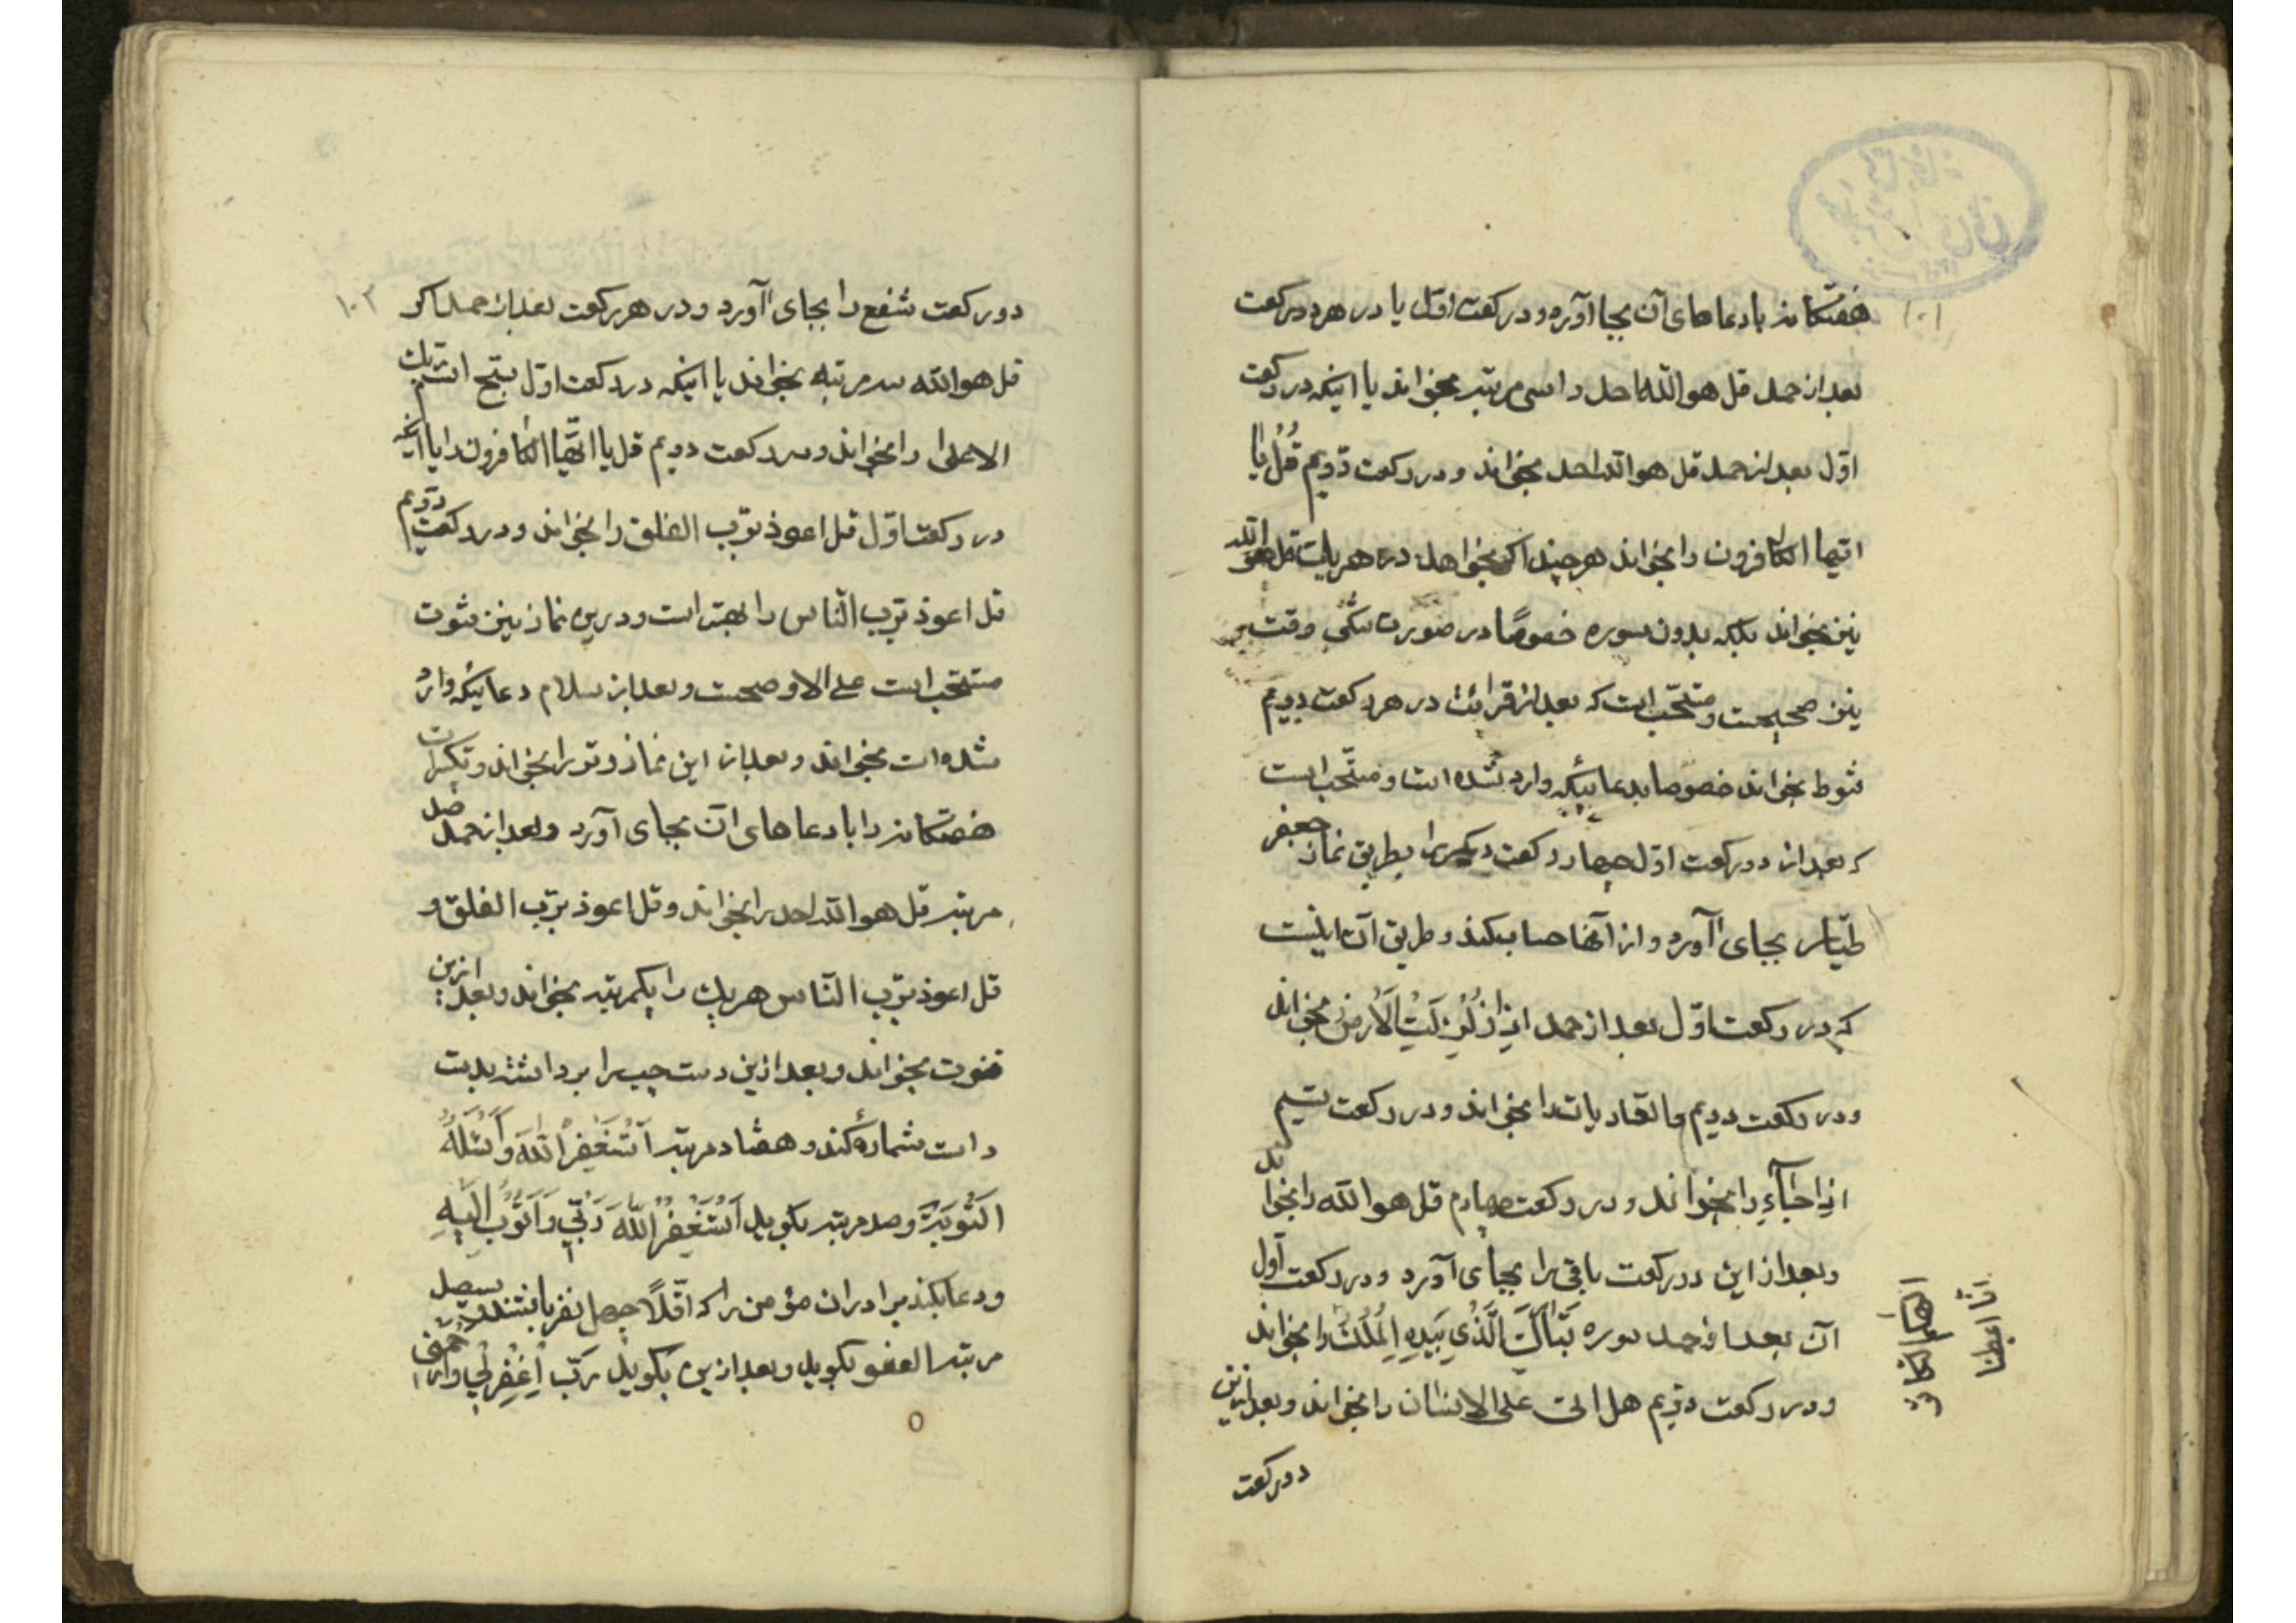 ۱۰۱
هفتکانه با دعاهای آن بجا آورد و در رکعت اوّل یا در هر دو رکعت
بعد از حمد قل هو اللّه احد را سی مرتبه بخواند یا اینکه در رکعت
اوّل بعد از حمد قل هو اللّه احد بخواند و در رکعت دوّیم قُل یا
ایّها الکافرون را بخواند هر چند اکر بخواهد در هر یک قل هو اللّه
نیز بخواند بلکه بدون سوره خصوصًا در صورت تنکی وقت
نیز صحیحست و مستحّب است که بعد از قرائت در هر رکعت دویم
قنوط بخواند خصوصا بدعائیکه وارد شده است و مستّحب است
که بعد از دو رکعت اوّل چهار رکعت دیکر را بطریق نماز جعفر
طیّار بجای آورد و از آنها حساب بکند و طریق آن اینست
که در رکعت اوّل بعد از حمد اذا زُلْزِلَتِ الْاَرض بخواند
و در رکعت دویم و العادیات را بخواند و در رکعت سیم
اذا جآء را بخواند و در رکعت چهارم قل هو اللّه را بخواند
و بعد از این دو رکعت باقی را بجای آورد و در رکعت اوّل
آن بعد از حمد سوره تَبٰارَکَ الَّذی بِیَدِهِ الْمُلْکُ را بخواند
و در رکعت دوّیم هل اتی علی الانسان را بخواند و بعد از این
دو رکعت
انّا اعطینا
۱۰۲
دو رکعت شفع را بجای آورد و در هر رکعت بعد از حمد اکر
قل هو اللّه سه مرتبه بخواند یا اینکه در رکعت اوّل سبّح اسم ربّک
الاعلی را بخواند و در رکعت دویم قل یا ایّها الکافرون را یا اینکه
در رکعت اوّل قل اعوذ بربّ الفلق را بخواند و در رکعت دوّیم
قل اعوذ بربّ النّاس را بهتر است و درین نماز نیز قنوت
مستحّب است علی الاوصحت و بعد از سلام دعائیکه وارد
شده است بخواند و بعد از این نماز وتو را بخواند و تکبیرات
هفتکانه را با دعاهای آن بجای آورد و بعد از حمد
مرتبه قل هو اللّه احد را بخواند و قل اعوذ بربّ الفلق و
قل اعوذ بربّ النّاس هر یک را یکمرتبه بخواند و بعد ازین
قنوت بخواند و بعد ازین دست چپ را برداشته بدست
راست شماره کند و هفتاد مرتبه اَسْتَغْفِرُ اللّهَ وَ اَسْئَلُهُ
التَّوْبَةَ و صد مرتبه بکوید اَسْتَغْفِرُ اللّهَ رَبّی وَ اَتُوبُ اِلَیْهِ
و دعا بکند برادران مؤمن را که اقلًّا چهل نفر باشند و سیصد
مرتبه العفو بکوید و بعد ازین بکوید رَبّ اغْفِرْلی وَارْحَمْنی